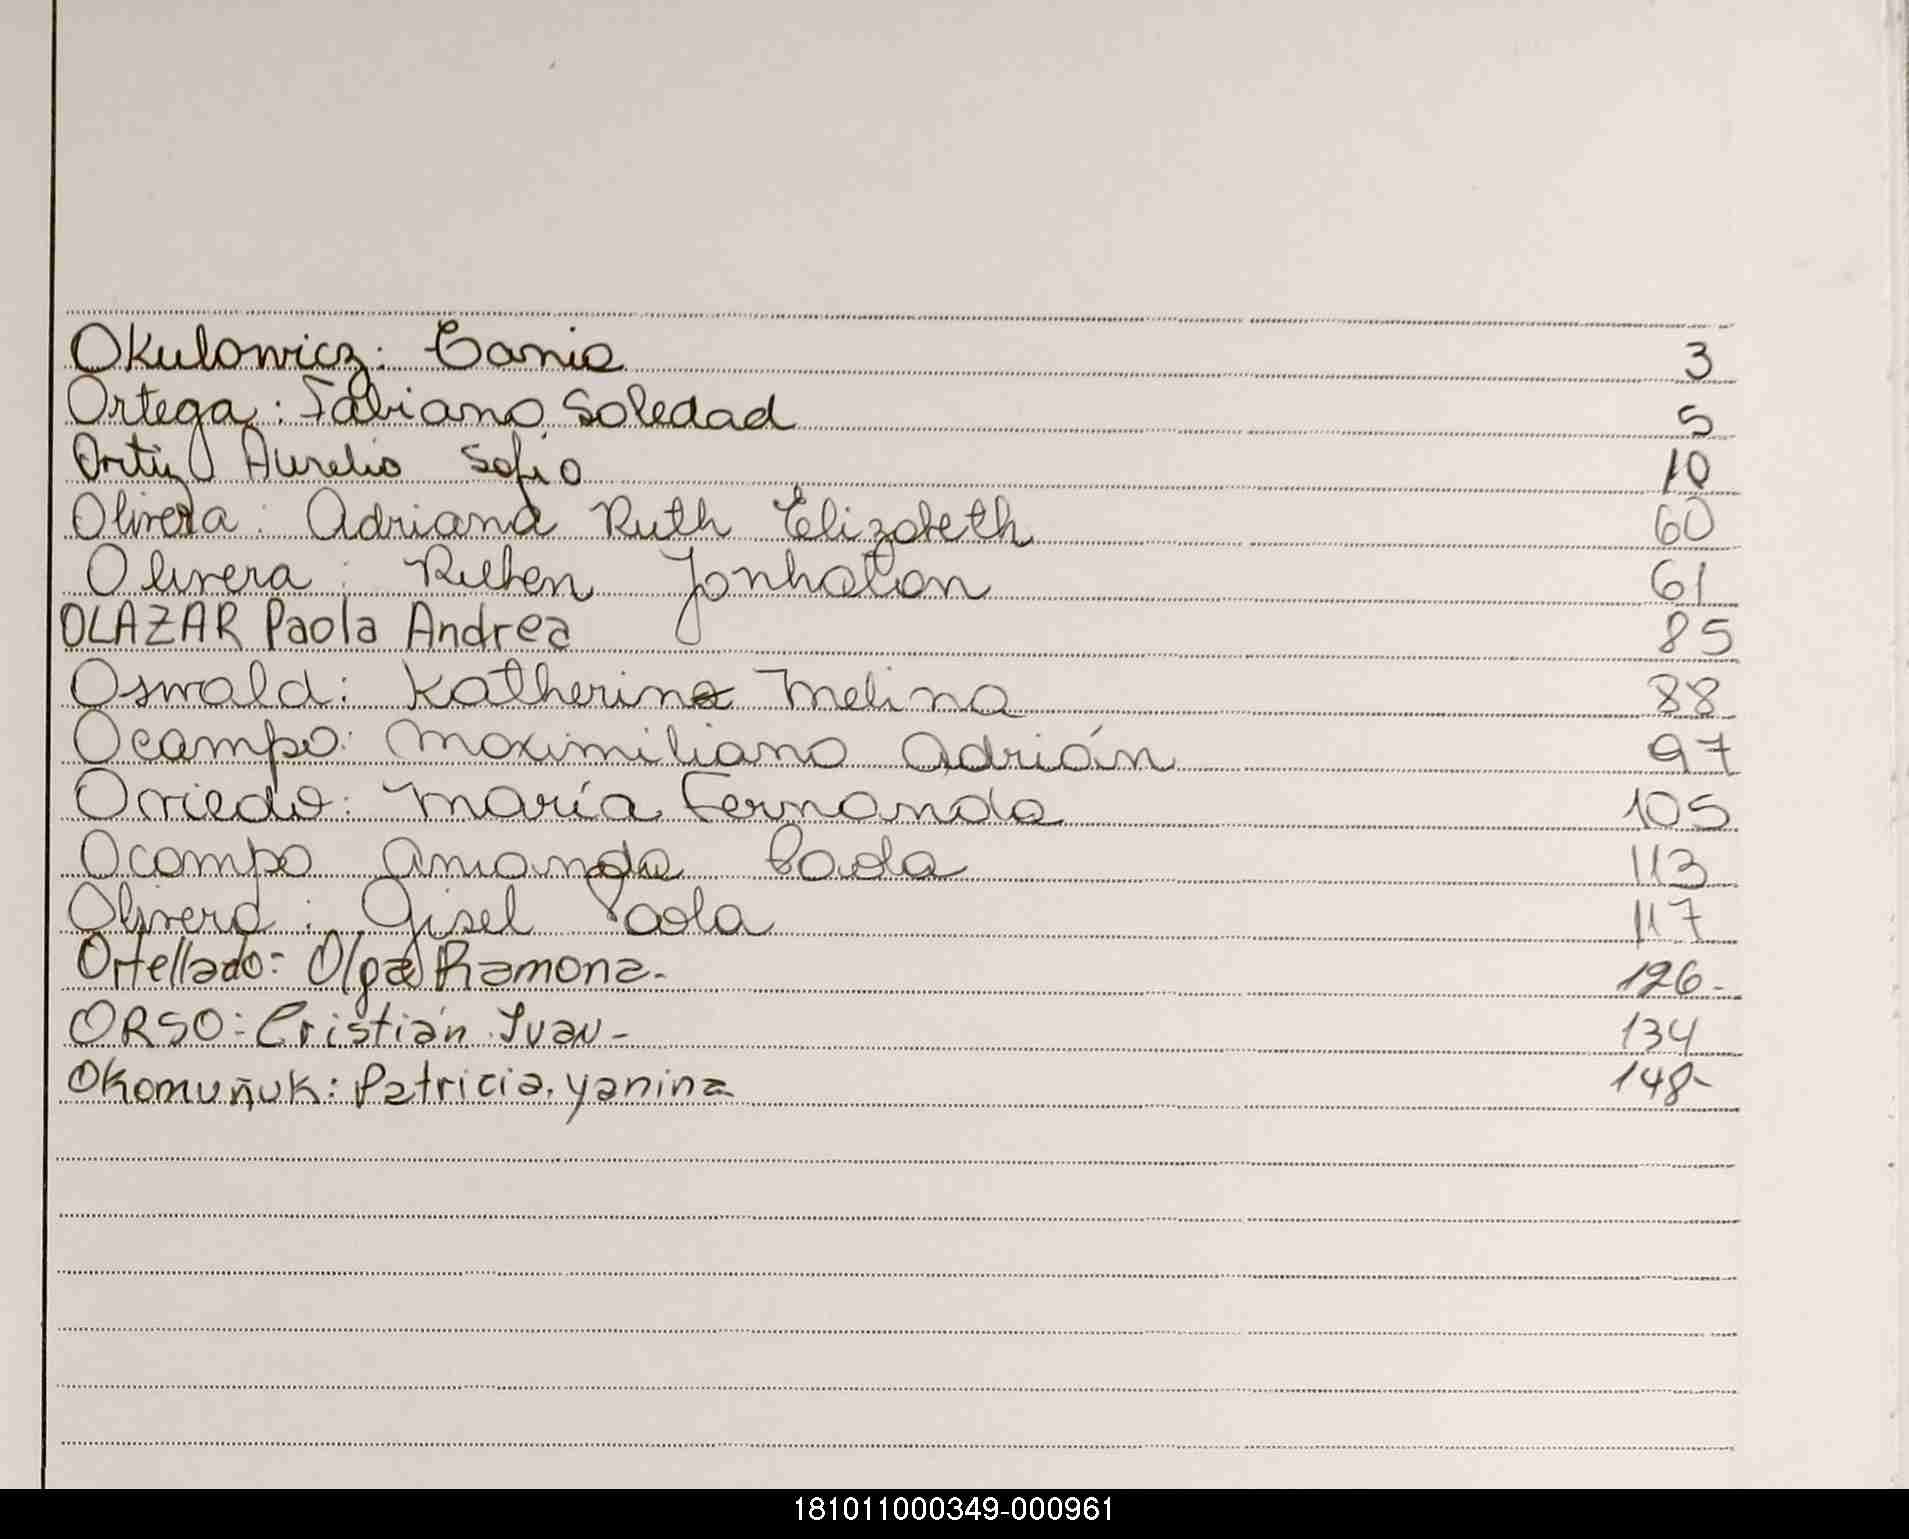 Okulowicz: Tania 3
Ortega: Fabiana Soledad 5
Ortiz Aurelia Sofia 10
Olivera: Adriana Ruth Elizabeth 60
Olivera: Ruben Jonhatan 61
OLAZAR Paola Andrea 85
Oswald: Katherine Melina 88
Ocampo: Maximiliano Adrián 97
Oviedo: María Fernanda 105
Ocampo Amanda Paola 113
Olivera: Gisel Paola 117
Ortellado: Olga Ramona. 126-
ORSO: Cristián Ivan- 134
Okomuñuk: Patricia. Yanina 148-
181011000349-000961